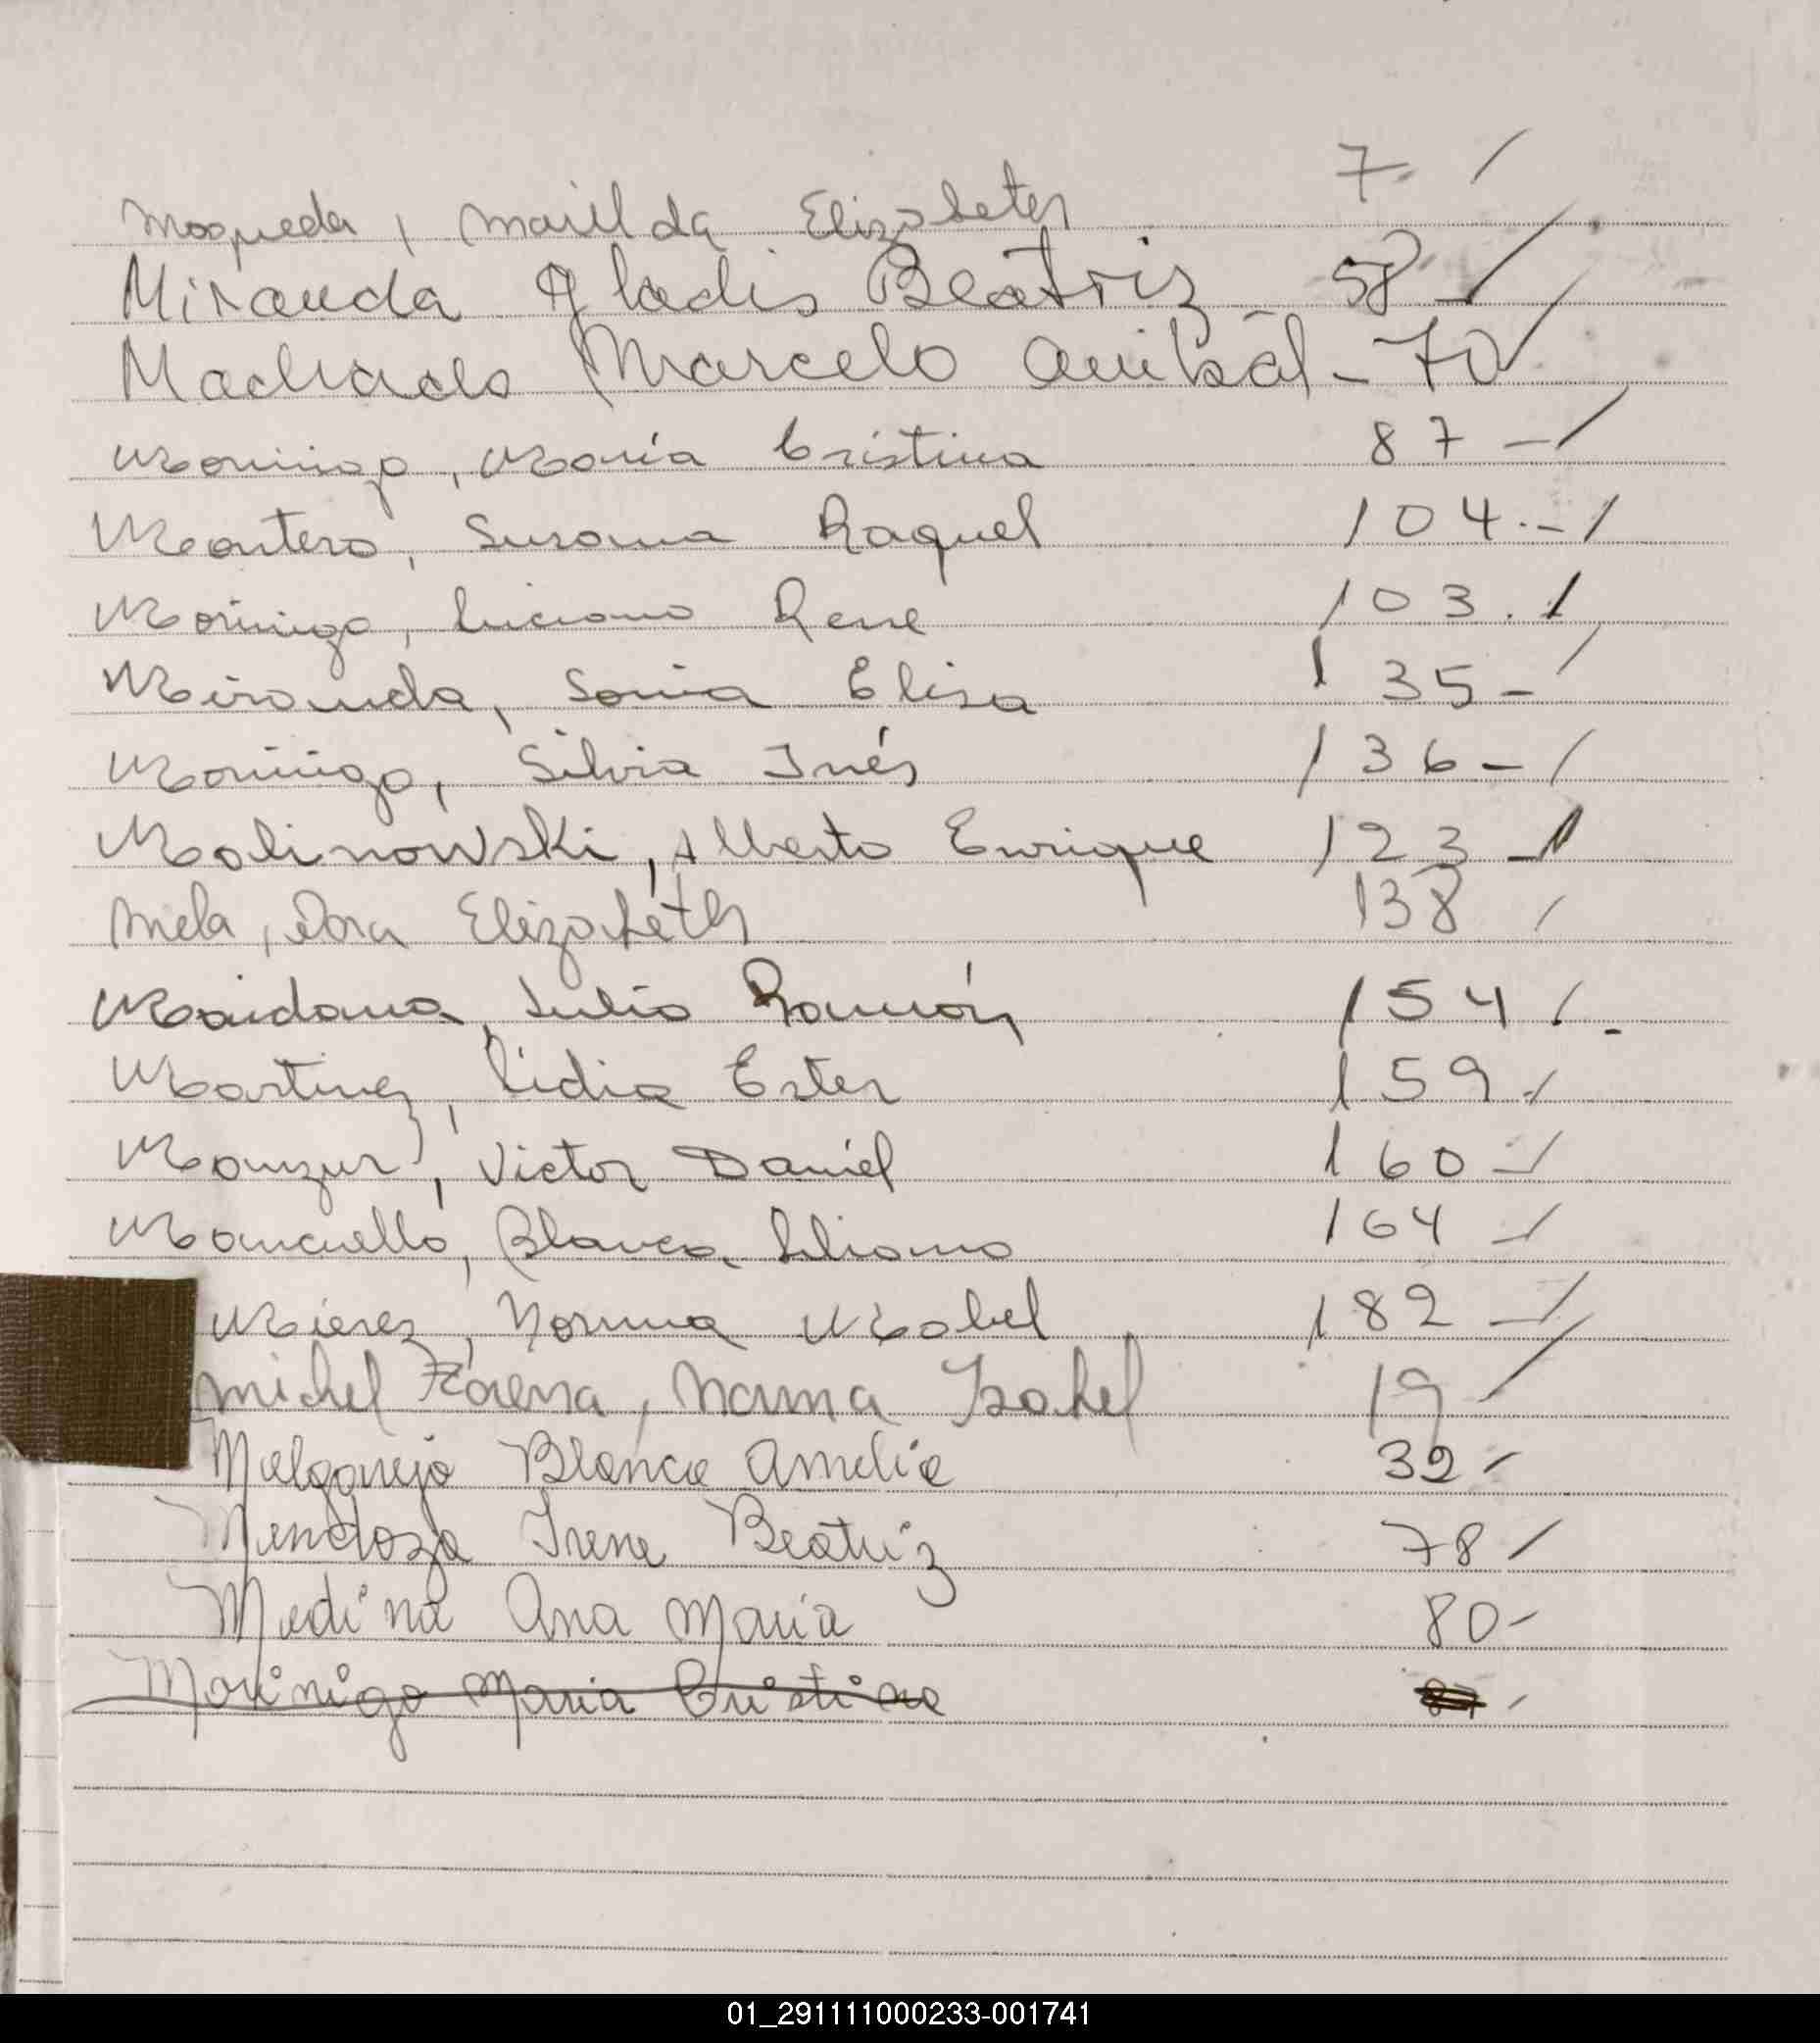 Mosqueda, Matilda Elizabeter 7.
Miranda Gladis Beatriz 58
Machado Marcelo Anibál - 70
Morinigo, María Cristina 87 -
Montero, Susana Raquel 104.-
Morinigo, Luciano Rene 103.
Miranda, Sonia Elisa 135 -
Morinigo, Silvia Inés 136 -
Malinowski, Alberto Enrique 123 -
Mela, Dora Elizabéth 138
Maidana, Julio Ramón 154
Martinez, Lidia Ester 159
Manzur, Victor Daniel 160 -
Manciello, Blanca Liliana 164 -
Mierez, Norma Mabel 182 -
Michel, Norma Isabel 19
Melgarejo Blanca Amelia 32
Mendoza Irene Beatriz 78
Medina Ana Maria 80
Morinigo Maria Cristina 87
01_291111000233-001741